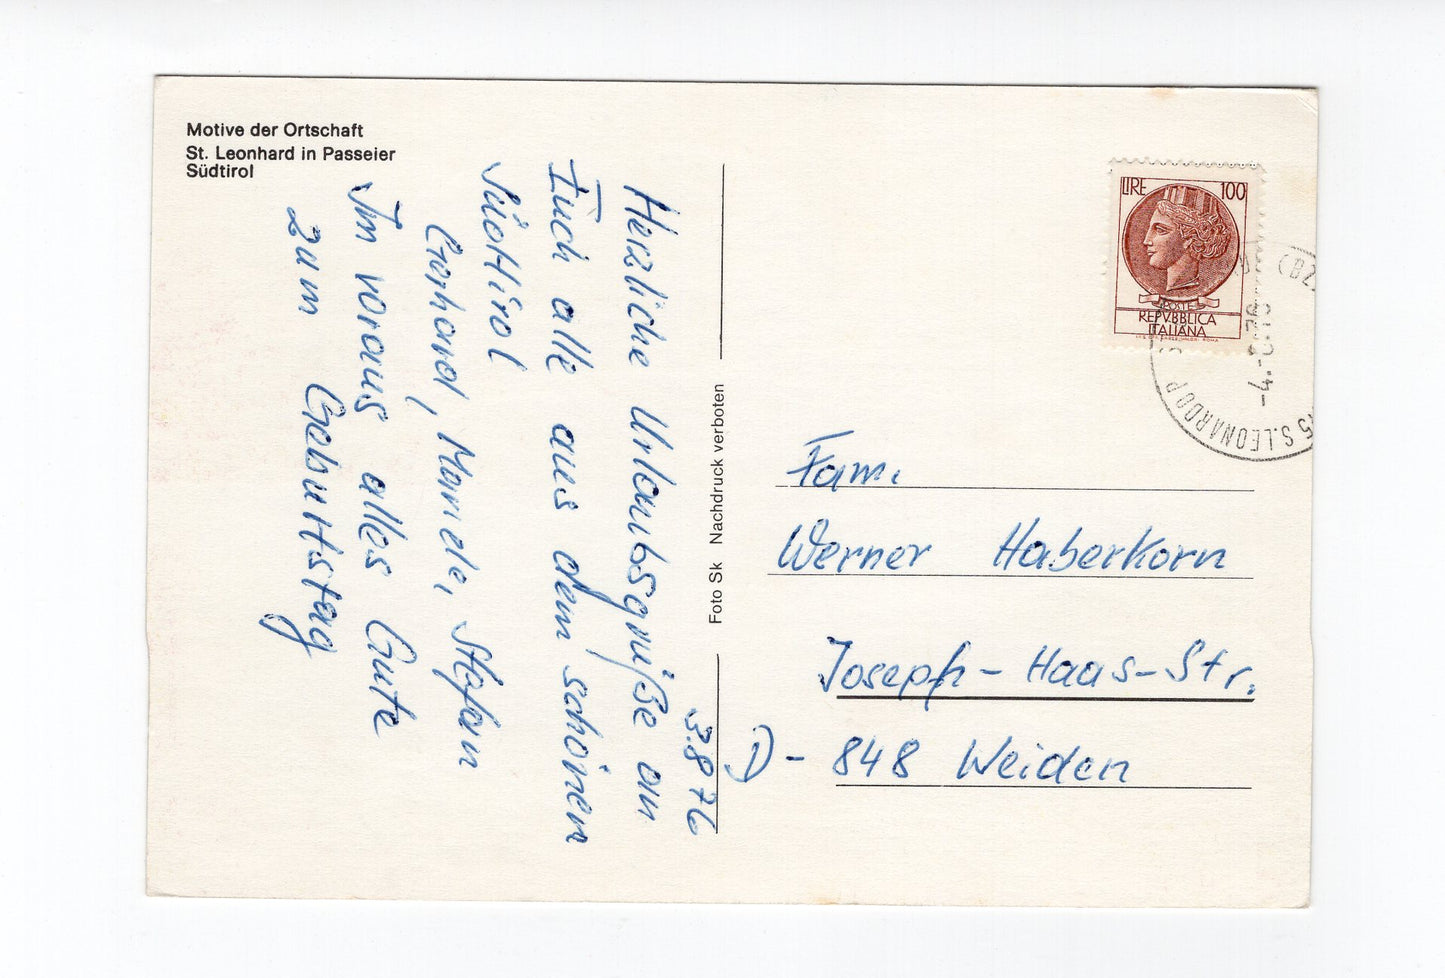 Motive der Ortschaft
St. Leonhard in Passeier
Südtirol
3.8.76
Herzliche Urlaubsgrüße an
Euch alle aus dem schönen
Südtirol
Gerhard, Manele, Stefan
Im voraus alles Gute
zum Geburtstag
Foto Sk Nachdruck verboten
LIRE 100
POSTE
REPVBBLICA
ITALIANA
(BZ)
-4.-8.76
S.LEONARDO P
Fam.
Werner Haberkorn
Joseph-Haas-Str.
D-848 Weiden